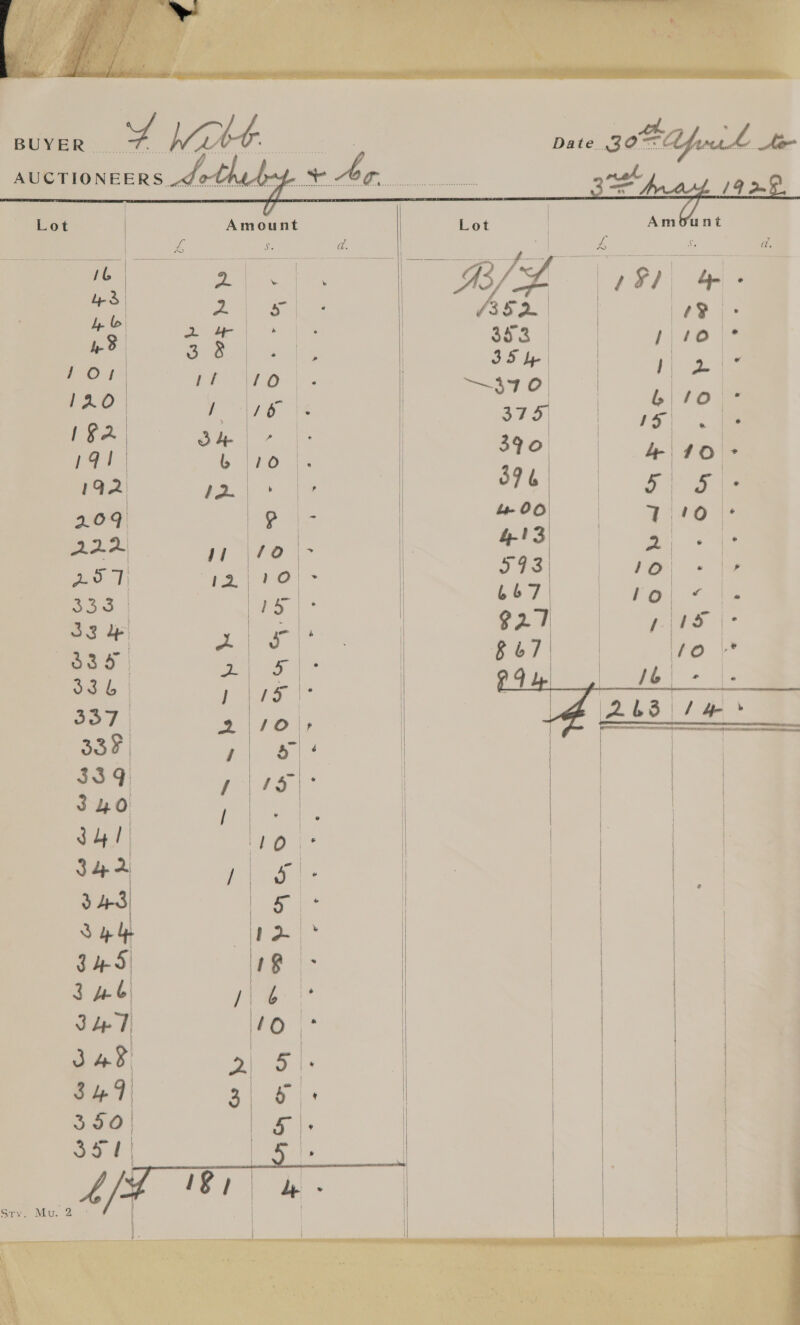 BUYER F Webb. Date 30th April to
AUCTIONEERS Sotheby & Co. 3rd May 1928.
Lot Amount Lot Amount
£ s. d. £ s. d.
16 2 . .
43 2 5 .
46 24 . .
48 38 . .
101 11 10 .
120 1 15 .
182 34 . .
191 6 10 .
192 12 . .
209 8 -
222 11 10 -
257 12 10 -
333 15 .
334 2 5 .
335 2 5 .
336 1 15 .
337 2 10 .
338 1 5 .
339 1 15 .
340 1 . .
341 10 .
342 1 5 .
343 5 .
344 12 .
345 18 -
346 1 6 .
347 10 .
348 2 5 .
349 3 5 .
350 5 .
351 5 .
C/F 181 4 -
B/F 181 4 .
352 18 .
353 1 10 .
354 1 2 .
370 6 10 .
375 15 . .
390 4 10 .
396 5 5 .
400 7 10 .
413 2 . .
593 10 . .
667 10 . .
827 1 15 .
867 10 .
894 16 - .
£ 263 14 .
Srv. Mu. 2